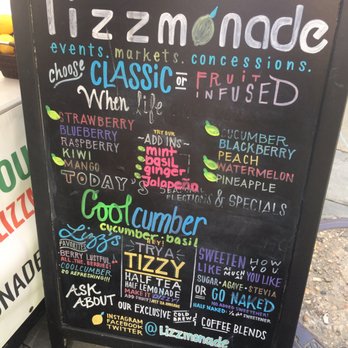 lizzmonade
events. markets. concessions.
choose CLASSIC or FRUIT INFUSED
When life
STRAWBERRY
BLUEBERRY
RASPBERRY
KIWI
MANGO
TRY OUR
~ADD INS~
mint
basil
ginger
Jalapeña
CUCUMBER
BLACKBERRY
PEACH
WATERMELON
PINEAPPLE
TODAY'S
& SPECIALS
Coolcumber
cucumber basil
Lizz's
FAVORITES
BERRY LUSTFUL
ALL THE BERRIES
COOLCUMBER
SO REFRESHING!!!
HEY!
TRY A
TIZZY
HALF TEA
HALF LEMONADE
MAKE IT
SWEETEN HOW YOU
LIKE AS MUCH YOU LIKE
SUGAR • AGAVE • STEVIA
OR GO NAKED
ASK ABOUT
OUR EXCLUSIVE COLD BREW & COFFEE BLENDS
INSTAGRAM
FACEBOOK
TWITTER
@lizzmonade
OU
LIZZ
ONADE